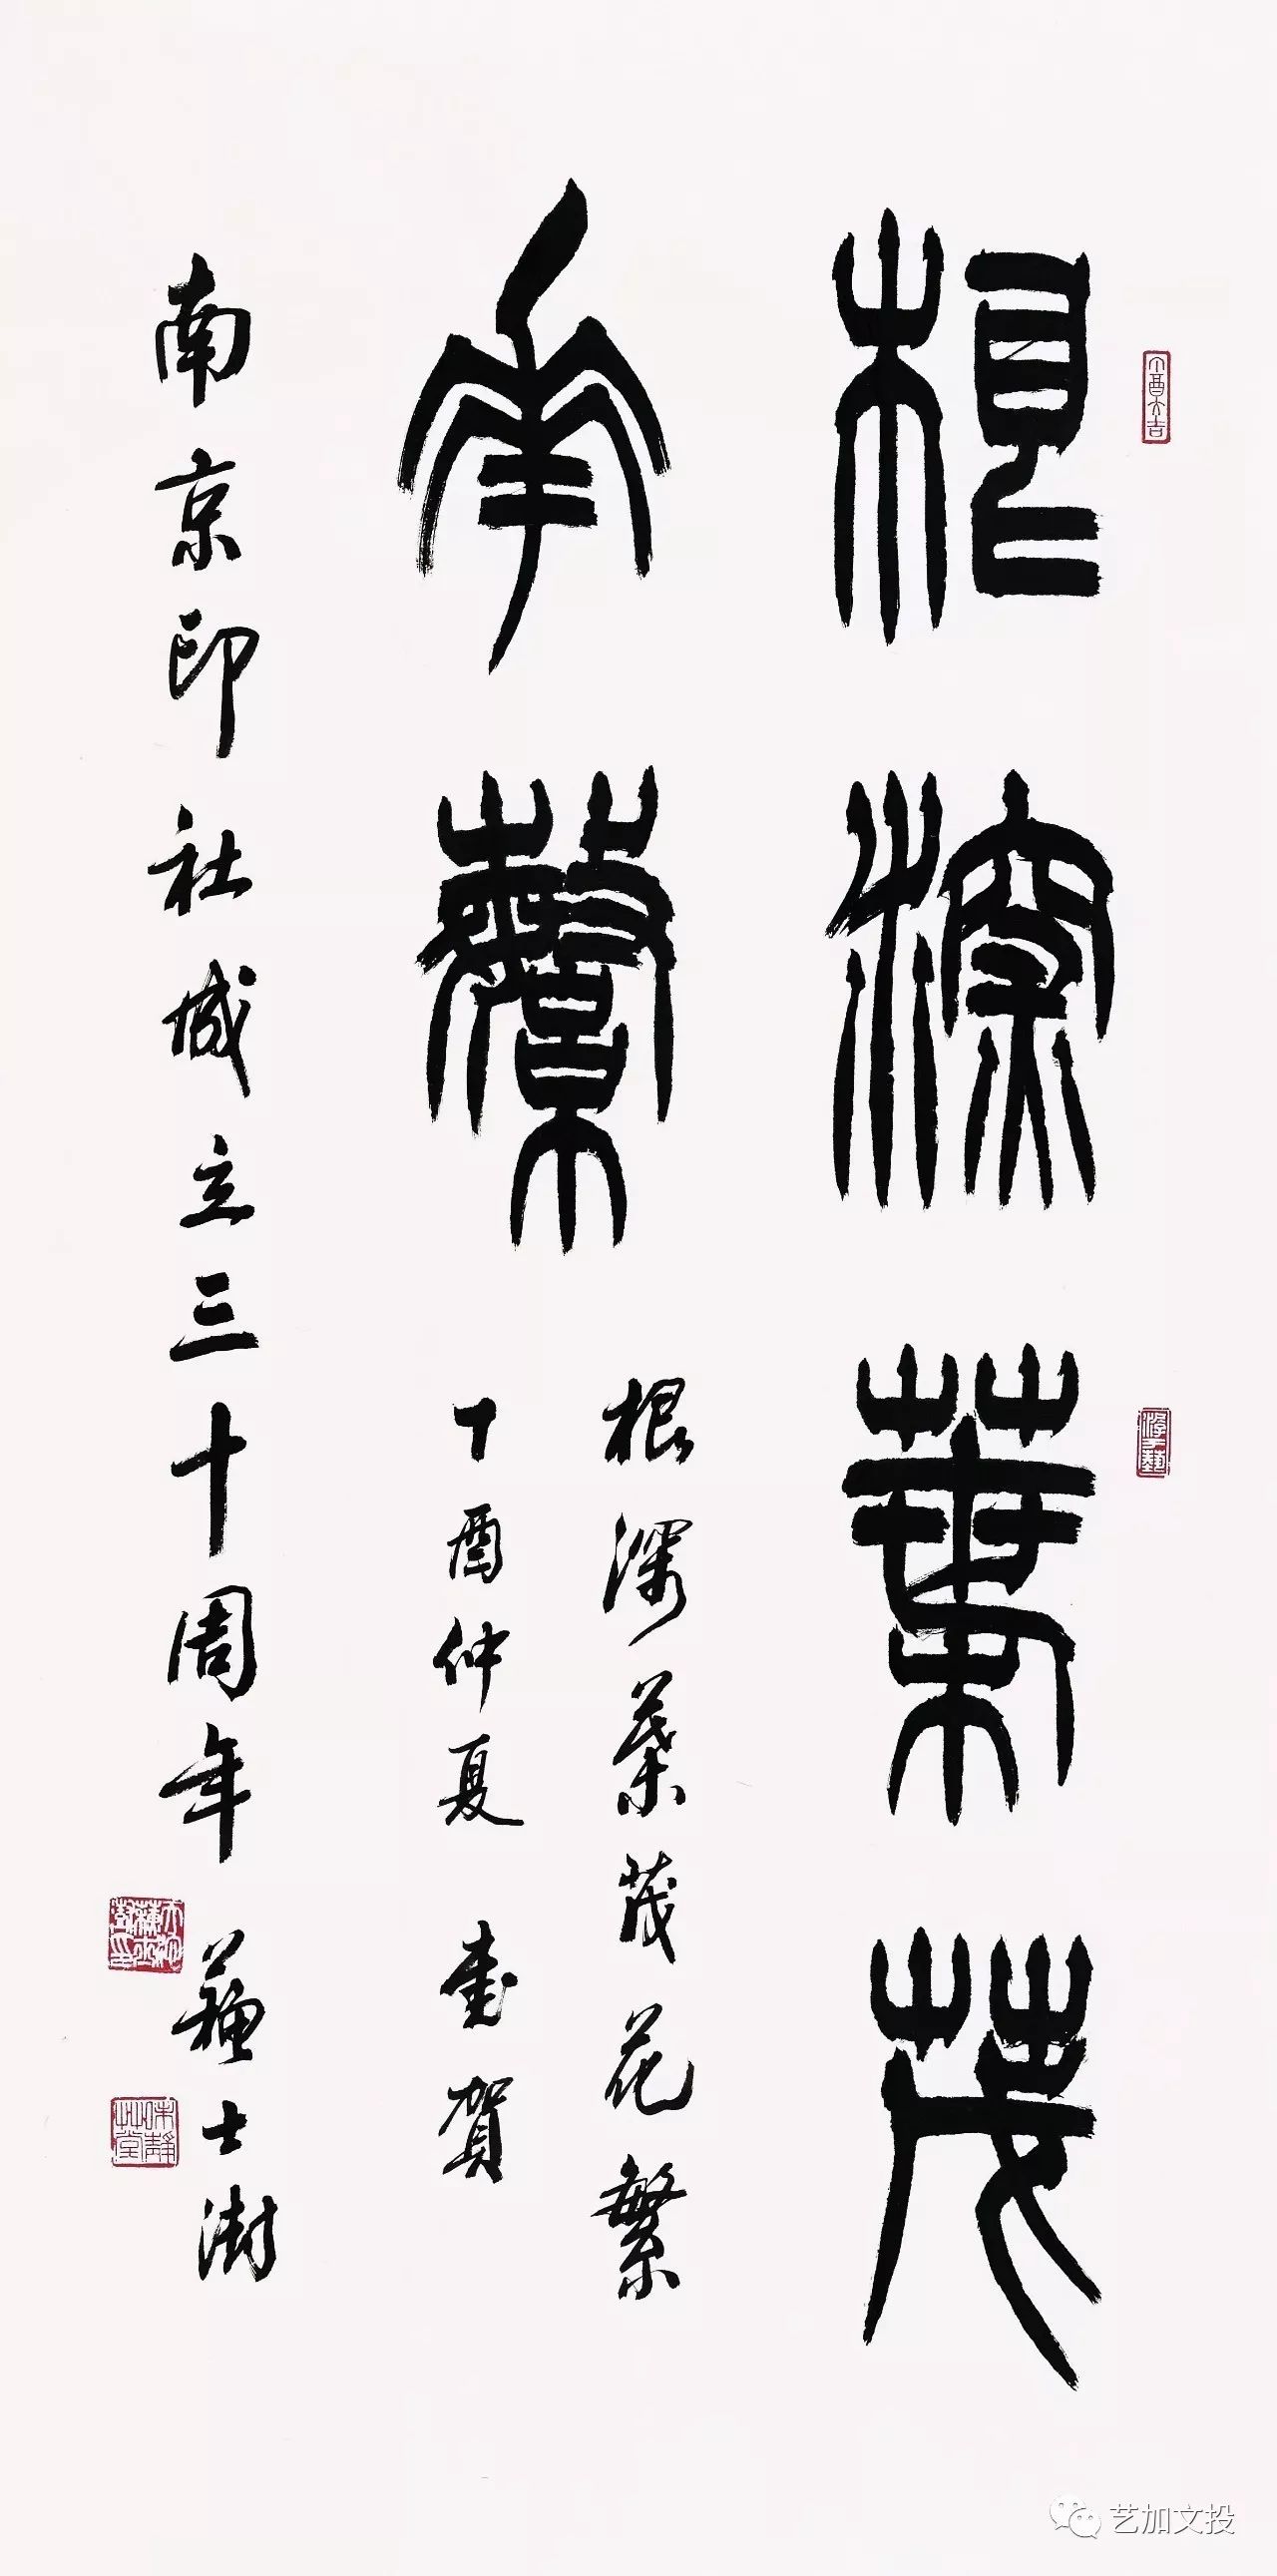 根深葉茂
𠌶蘩
根深葉茂花繁
丁酉仲夏 書賀
南京印社成立三十周年 蘇士澍
丁酉大吉
艺加文投